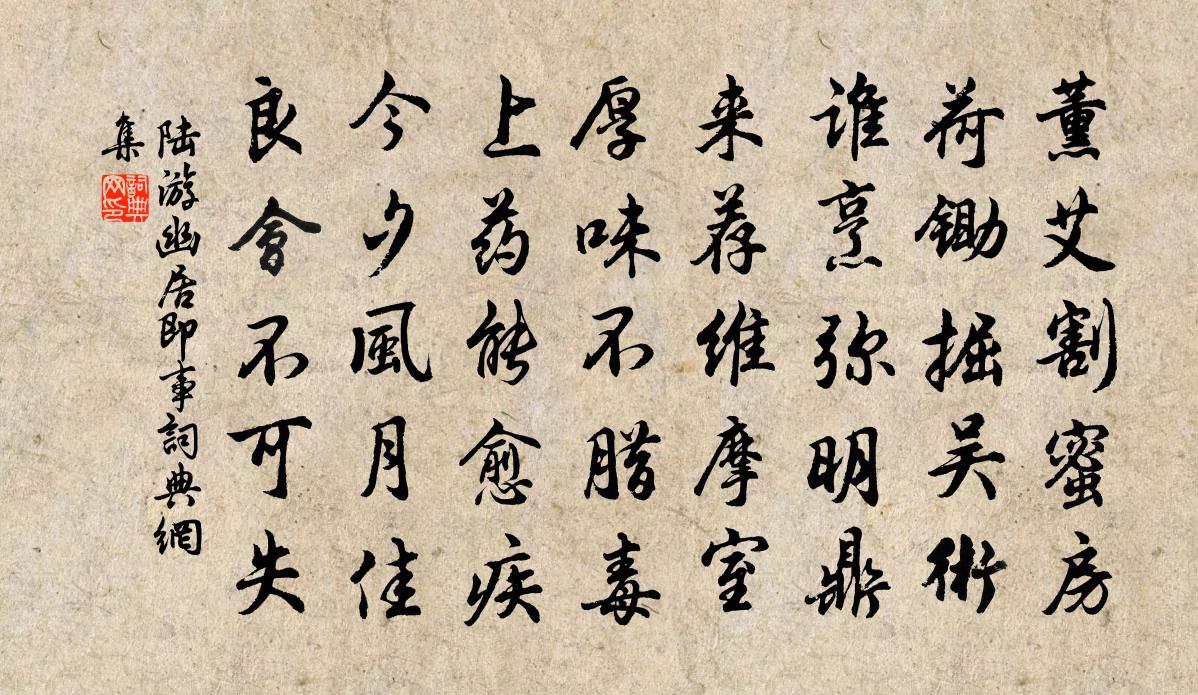 薰艾割蜜房
荷锄掘吴術
谁烹弥明鼎
来荐维摩室
厚味不腊毒
上药能愈疾
今夕風月佳
良會不可失
陆游幽居即事詞典網
集
詞典
网印